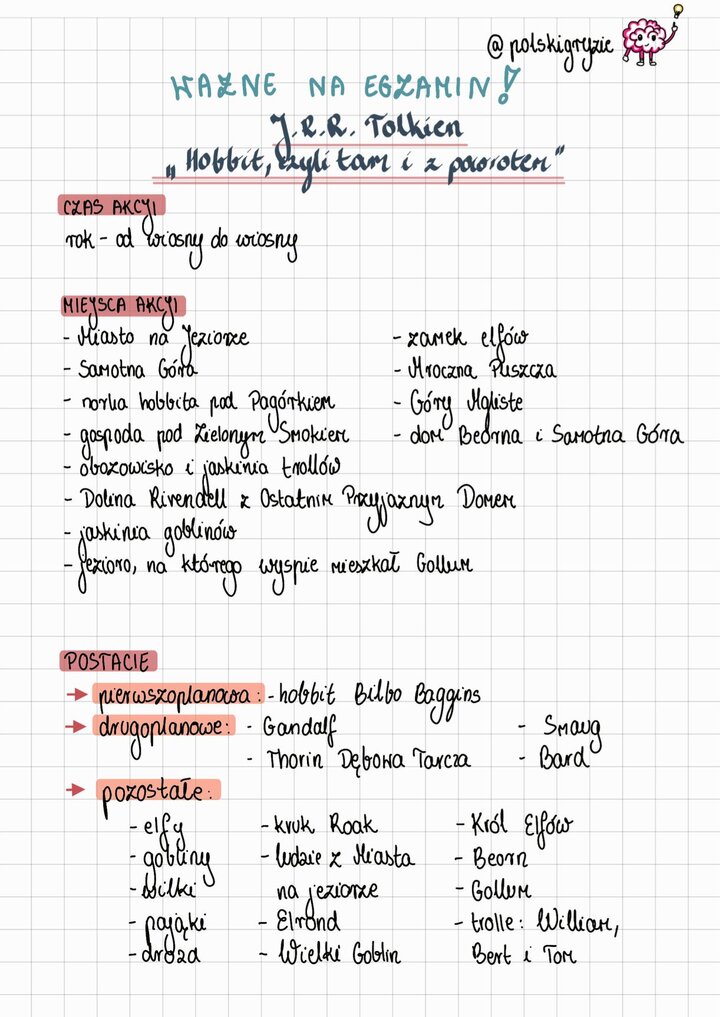 @polskigryzie
WAŻNE NA EGZAMIN!
J.R.R. Tolkien
„Hobbit, czyli tam i z powrotem”
CZAS AKCJI
rok - od wiosny do wiosny
MIEJSCA AKCJI
- Miasto na Jeziorze
- Samotna Góra
- norka hobbita pod Pagórkiem
- gospoda pod Zielonym Smokiem
- obozowisko i jaskinia trollów
- Dolina Rivendell z Ostatnim Przyjaznym Domem
- jaskinia goblinów
- jezioro, na którego wyspie mieszkał Gollum
- zamek elfów
- Mroczna Puszcza
- Góry Mgliste
- dom Beorna i Samotna Góra
POSTACIE
→ pierwszoplanowa: - hobbit Bilbo Baggins
→ drugoplanowe: - Gandalf
- Thorin Dębowa Tarcza
- Smaug
- Bard
→ pozostałe:
- elfy
- gobliny
- wilki
- pająki
- drozd
- kruk Roak
- ludzie z Miasta
na jeziorze
- Elrond
- Wielki Goblin
- Król Elfów
- Beorn
- Gollum
- trolle: William,
Bert i Tom